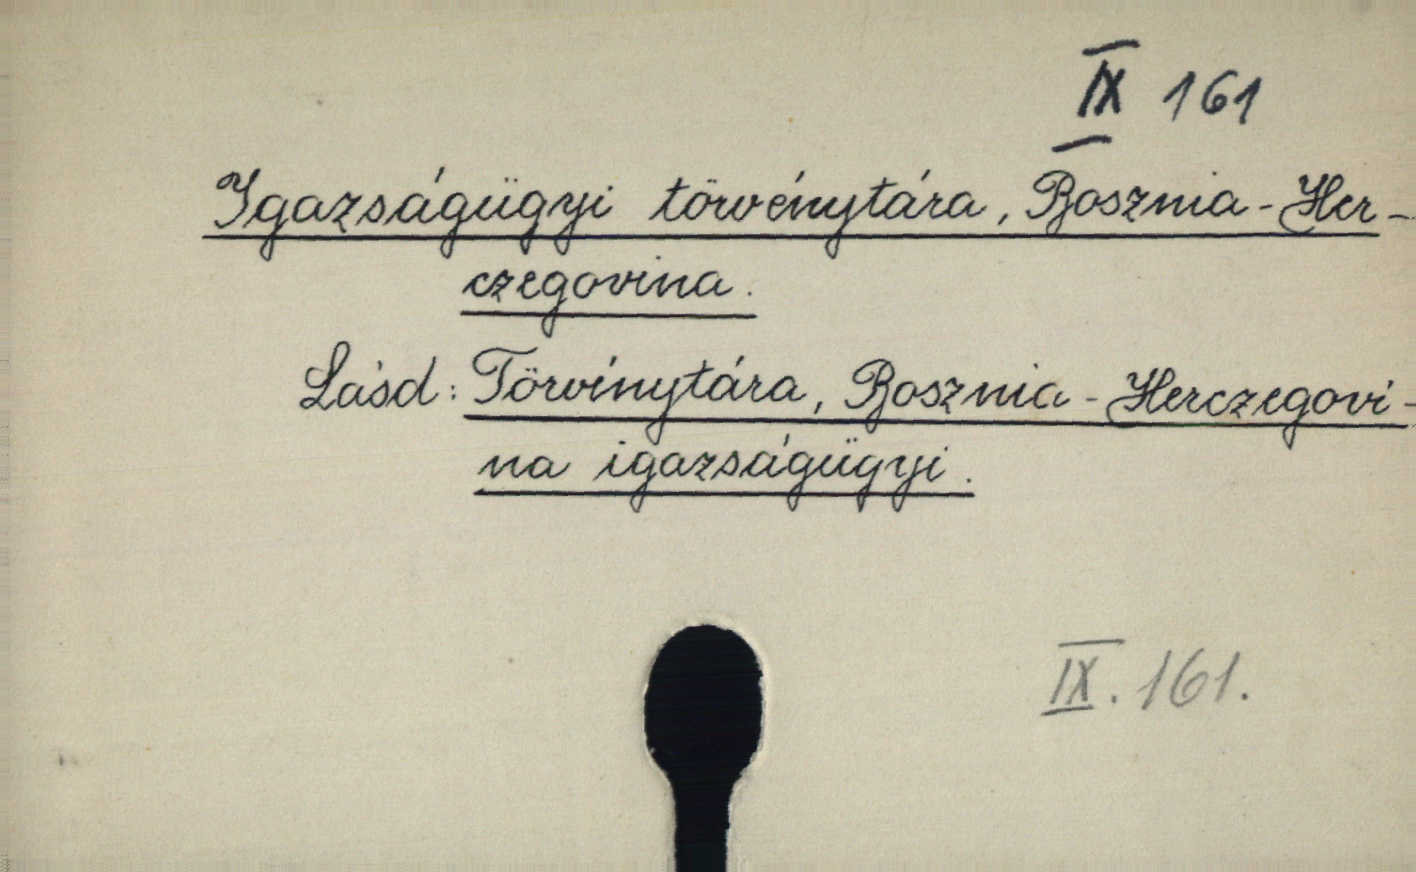 IX 161
Igazságügyi törvénytára, Bosznia-Her-
czegovina.
Lásd: Törvénytára, Bosznia-Herczegovi-
na igazságügyi.
IX. 161.